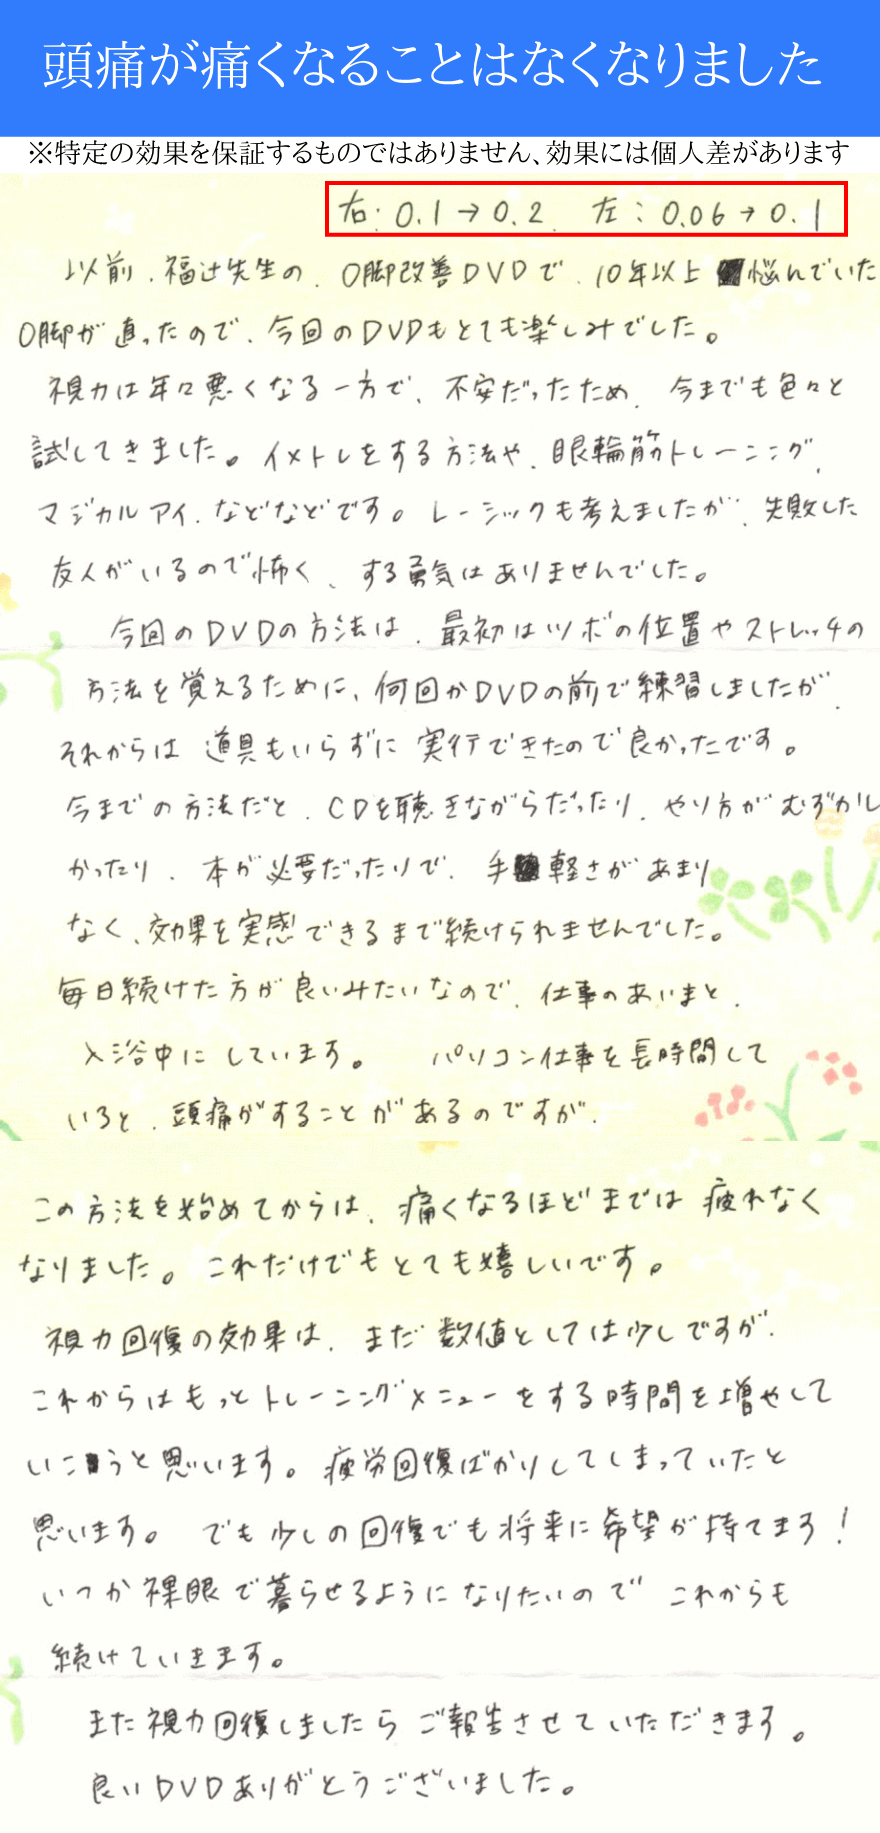 頭痛が痛くなることはなくなりました
※特定の効果を保証するものではありません、効果には個人差があります
右:0.1→0.2 左:0.06→0.1
以前、福辻先生の、O脚改善DVDで、10年以上 悩んでいた
O脚が直ったので、今回のDVDもとても楽しみでした。
視力は年々悪くなる一方で、不安だったため、今までも色々と
試してきました。イメトレをする方法や、眼輪筋トレーニング、
マジカルアイ、などなどです。レーシックも考えましたが、失敗した
友人がいるので怖く、する勇気はありませんでした。
今回のDVDの方法は、最初はツボの位置やストレッチの
方法を覚えるために、何回かDVDの前で練習しましたが、
それからは道具もいらずに実行できたので良かったです。
今までの方法だと、CDを聴きながらだったり、やり方がむずかし
かったり、本が必要だったりで、手軽さがあまり
なく、効果を実感できるまで続けられませんでした。
毎日続けた方が良いみたいなので、仕事のあいまと、
入浴中にしています。 パソコン仕事を長時間して
いると、頭痛がすることがあるのですが、
この方法を始めてからは、痛くなるほどまでは疲れなく
なりました。これだけでもとても嬉しいです。
視力回復の効果は、まだ数値としては少しですが、
これからはもっとトレーニングメニューをする時間を増やして
いこうと思います。疲労回復ばかりしてしまっていたと
思います。でも少しの回復でも将来に希望が持てます!
いつか裸眼で暮らせるようになりたいのでこれからも
続けていきます。
また視力回復しましたらご報告させていただきます。
良いDVDありがとうございました。